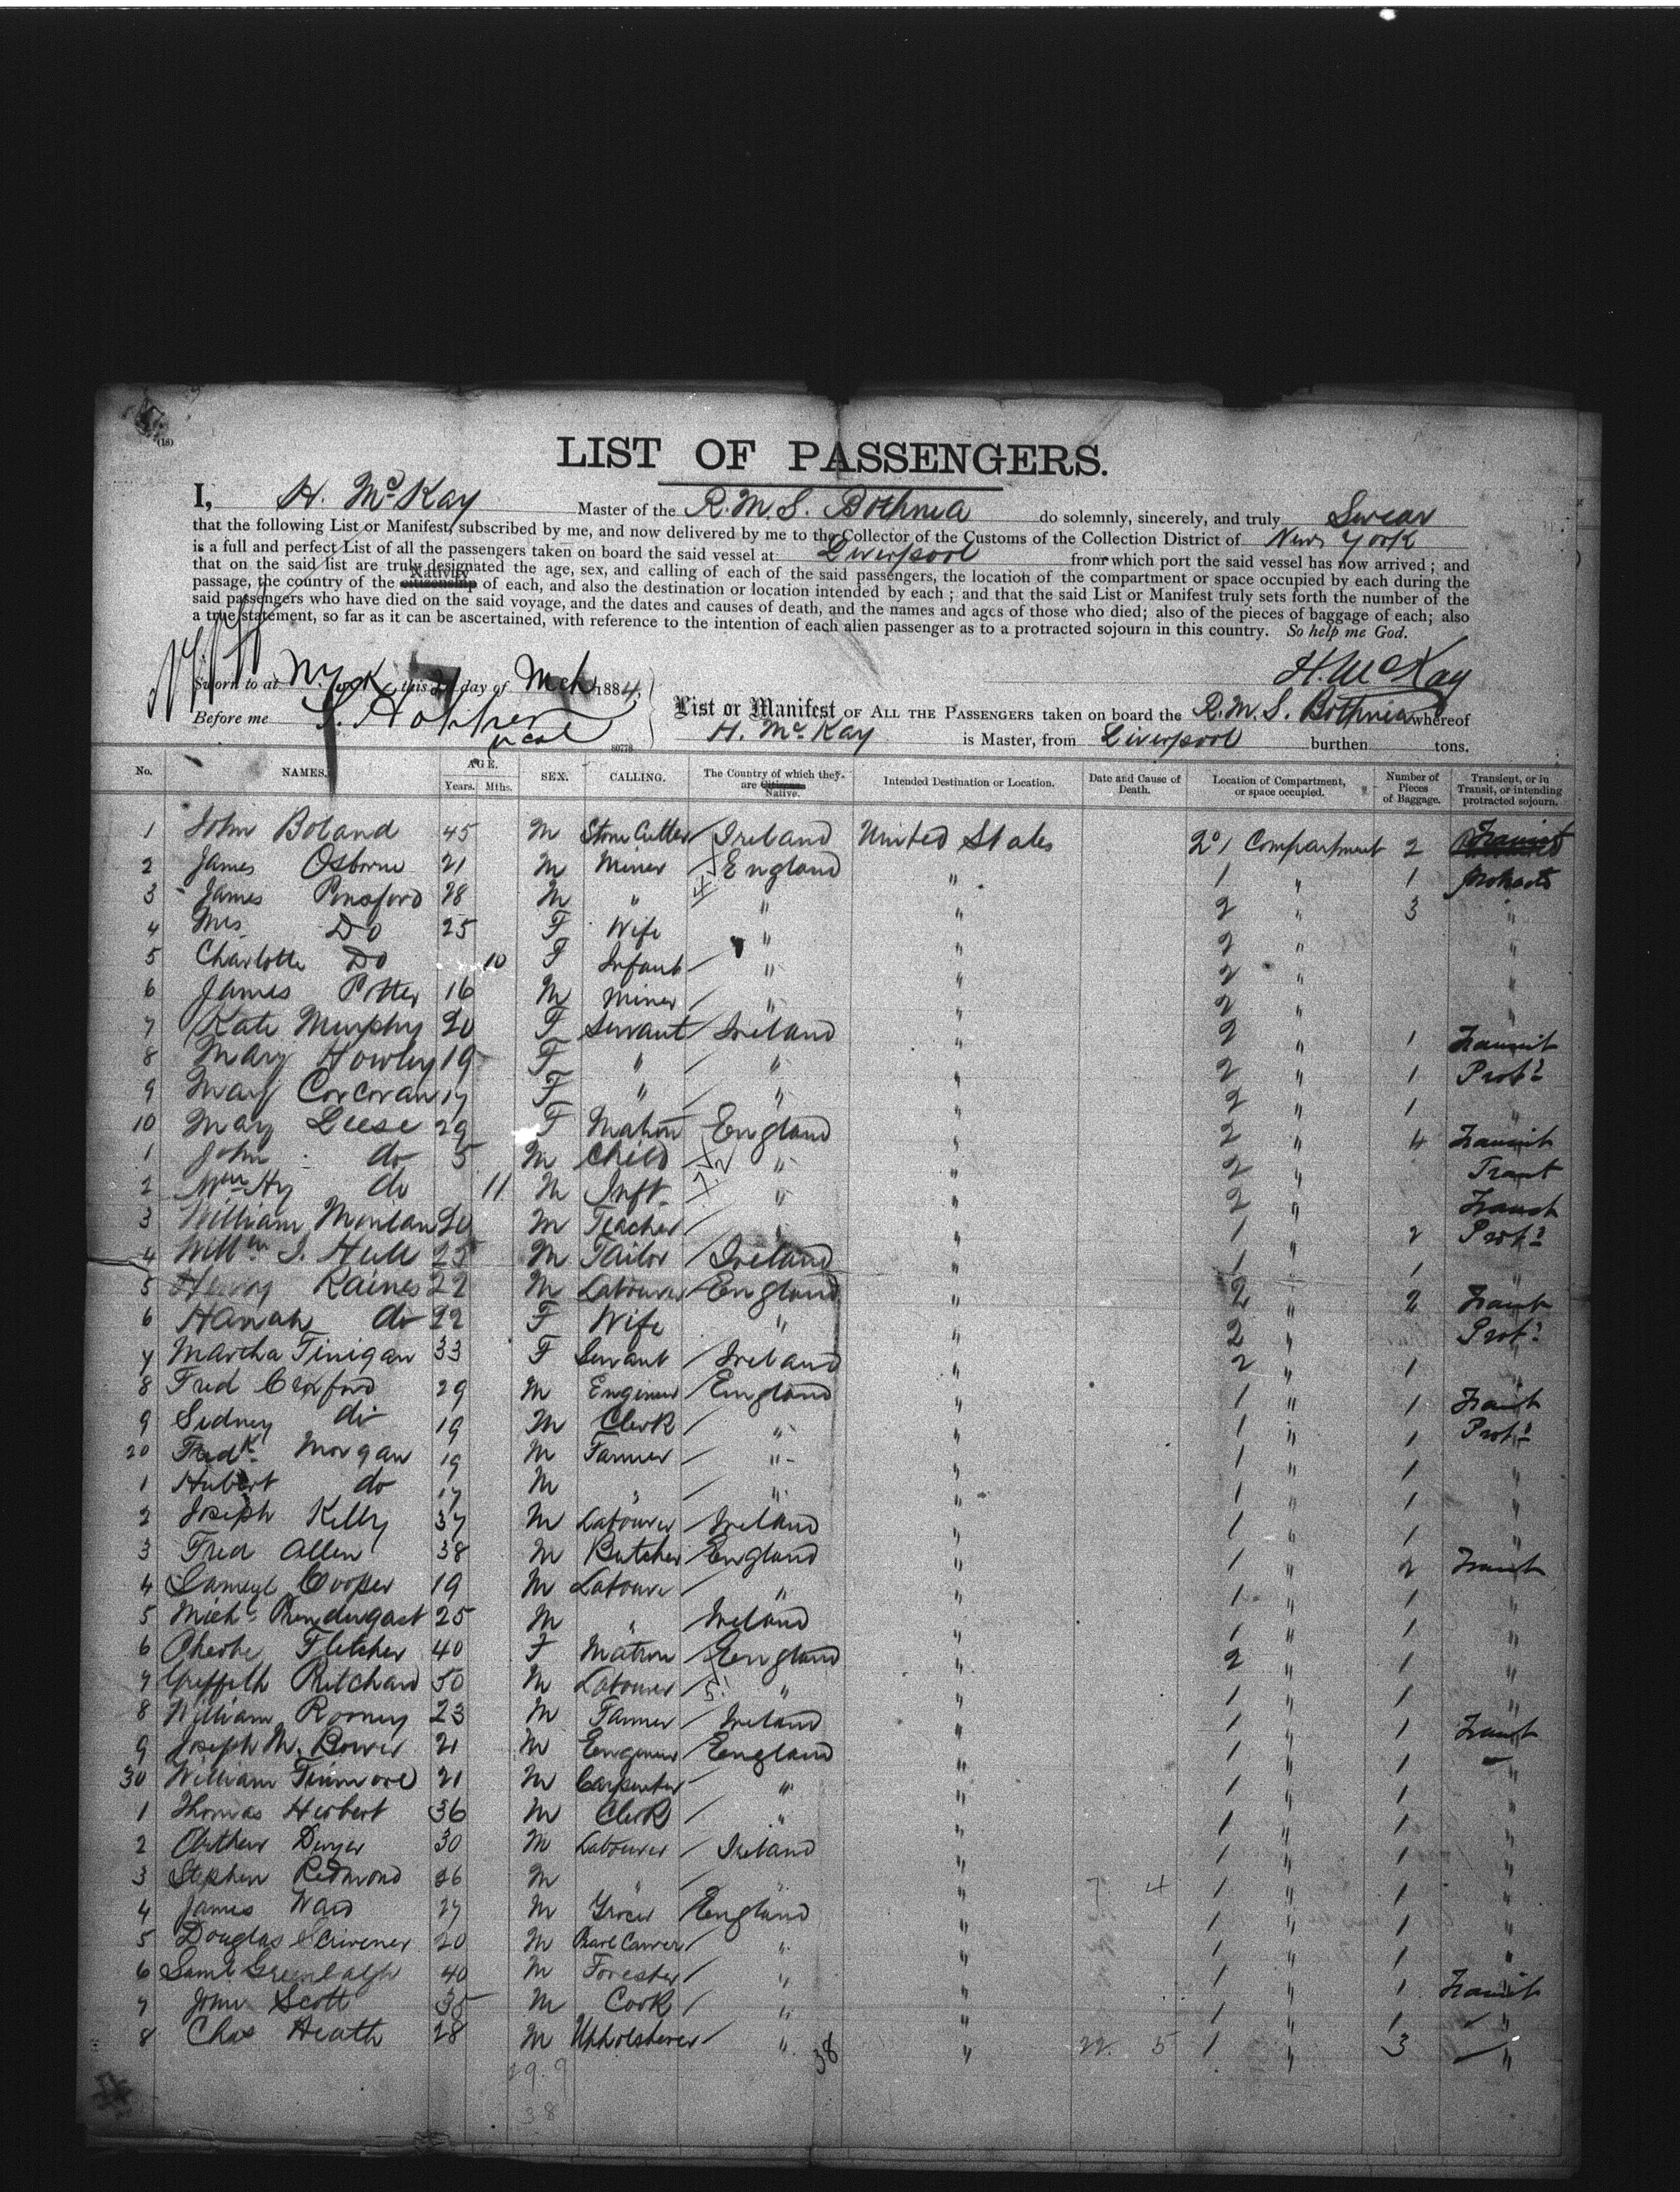 (18)
LIST OF PASSENGERS.
I, H. McKay Master of the R.M.S. Bothnia do solemnly, sincerely, and truly Swear
that the following List or Manifest, subscribed by me, and now delivered by me to the Collector of the Customs of the Collection District of New York
is a full and perfect List of all the passengers taken on board the said vessel at Liverpool from which port the said vessel has now arrived; and
that on the said list are truly designated the age, sex, and calling of each of the said passengers, the location of the compartment or space occupied by each during the
Nativity
passage, the country of the citizenship of each, and also the destination or location intended by each; and that the said List or Manifest truly sets forth the number of the
said passengers who have died on the said voyage, and the dates and causes of death, and the names and ages of those who died; also of the pieces of baggage of each; also
a true statement, so far as it can be ascertained, with reference to the intention of each alien passenger as to a protracted sojourn in this country. So help me God.
H. McKay
Sworn to at N. York this day of Mch 1884,
Before me
List or Manifest OF ALL THE PASSENGERS taken on board the R.M.S. Bothnia whereof
H. McKay is Master, from Liverpool burthen tons.
80778
No. NAMES. AGE. Years. Mths. SEX. CALLING. The Country of which they are Citizens Native. Intended Destination or Location. Date and Cause of Death. Location of Compartment, or space occupied. Number of Pieces of Baggage. Transient, or in Transit, or intending protracted sojourn.
1 John Boland 45 M Stone Cutter Ireland United States 1 Compartment 2 Transit
2 James Osborne 21 M Miner England " 1 " 1
3 James Ponsford 28 M " " " 2 " 3 "
4 Mrs Do 25 F Wife " " 2 " "
5 Charlotte Do 10 F Infant " " 2 " "
6 James Potter 16 M Miner " " 2 " "
7 Kate Murphy 20 F Servant Ireland " 2 " 1 Transit
8 Mary Howley 19 F " " " 2 " 1 Prot?
9 Mary Corcoran 17 F " " " 2 " 1 "
10 Mary Leese 29 F Matron England " 2 " 4 Transit
1 John do 5 M Child " " 2 " Trant
2 Wm Hy do 11 M Inft " " 2 " Transt
3 William 20 M Teacher " " 1 " 2 Prot?
4 Willm J. Hull 25 M Tailor Ireland " 1 " 1 "
5 Henry Raines 22 M Labourer England " 2 " 2 Transt
6 Hanah do 22 F Wife " " 2 " Prot?
7 Martha Finigan 33 F Servant Ireland " 2 " 1 "
8 Fred Croxford 29 M Engineer England " 1 " 1 Transit
9 Sidney do 19 M Clerk " " 1 " 1 Prot?
20 Fredk Morgan 19 M Farmer " " 1 " 1 "
1 Hubert do 17 M " " " 1 " 1 "
2 Joseph Kelly 37 M Labourer Ireland " 1 " 1 "
3 Fred Allen 38 M Butcher England " 1 " 2 Transit
4 Samuel Cooper 19 M Labourer " " 1 " 1 "
5 Michl Prendergast 25 M " Ireland " 1 " 1 "
6 Phoebe Fletcher 40 F Matron England " 2 " 1 "
7 Griffith Pritchard 50 M Labourer " " 1 " 1 "
8 William Rooney 23 M Farmer Ireland " 1 " 1 Transit
9 Joseph M. Bower 21 M Engineer England " 1 " 1 "
30 William 21 M Carpenter " " 1 " 1 "
1 Thomas Herbert 36 M Clerk " " 1 " 1 "
2 Arthur Dwyer 30 M Labourer Ireland " 1 " 1 "
3 Stephen Redmond 26 M " " " 7 4 1 " 1 "
4 James Ward 27 M Grocer England " 1 " 1 "
5 Douglas Scrivener 20 M Pearl Carver " " 1 " 1 "
6 Saml Greenhalgh 40 M Forester " " 1 " 1 Transit
7 John Scott 35 M Cook " " 1 " 1 "
8 Chas Heath 28 M Upholsterer " " 22 5 1 " 3 "
38
29.9
38